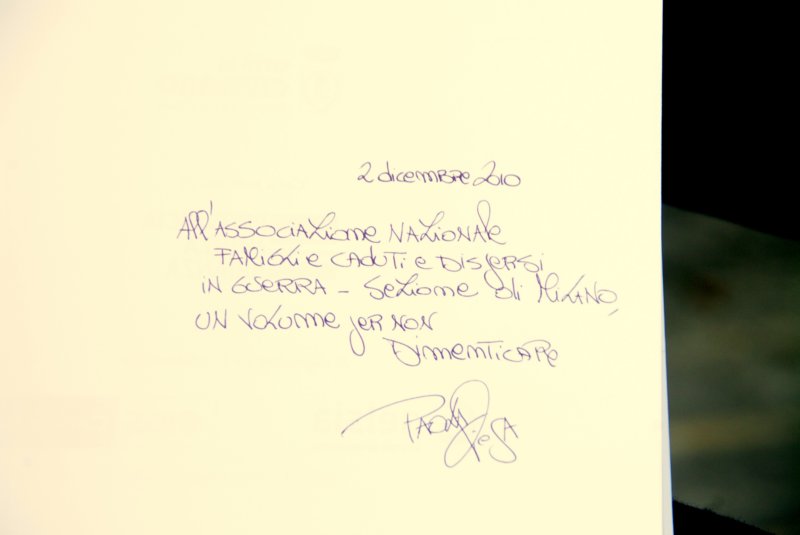 2 dicembre 2010
All'Associazione Nazionale
Famiglie Caduti e Dispersi
in Guerra - Sezione di Milano,
un volume per non
Dimenticare
Paola